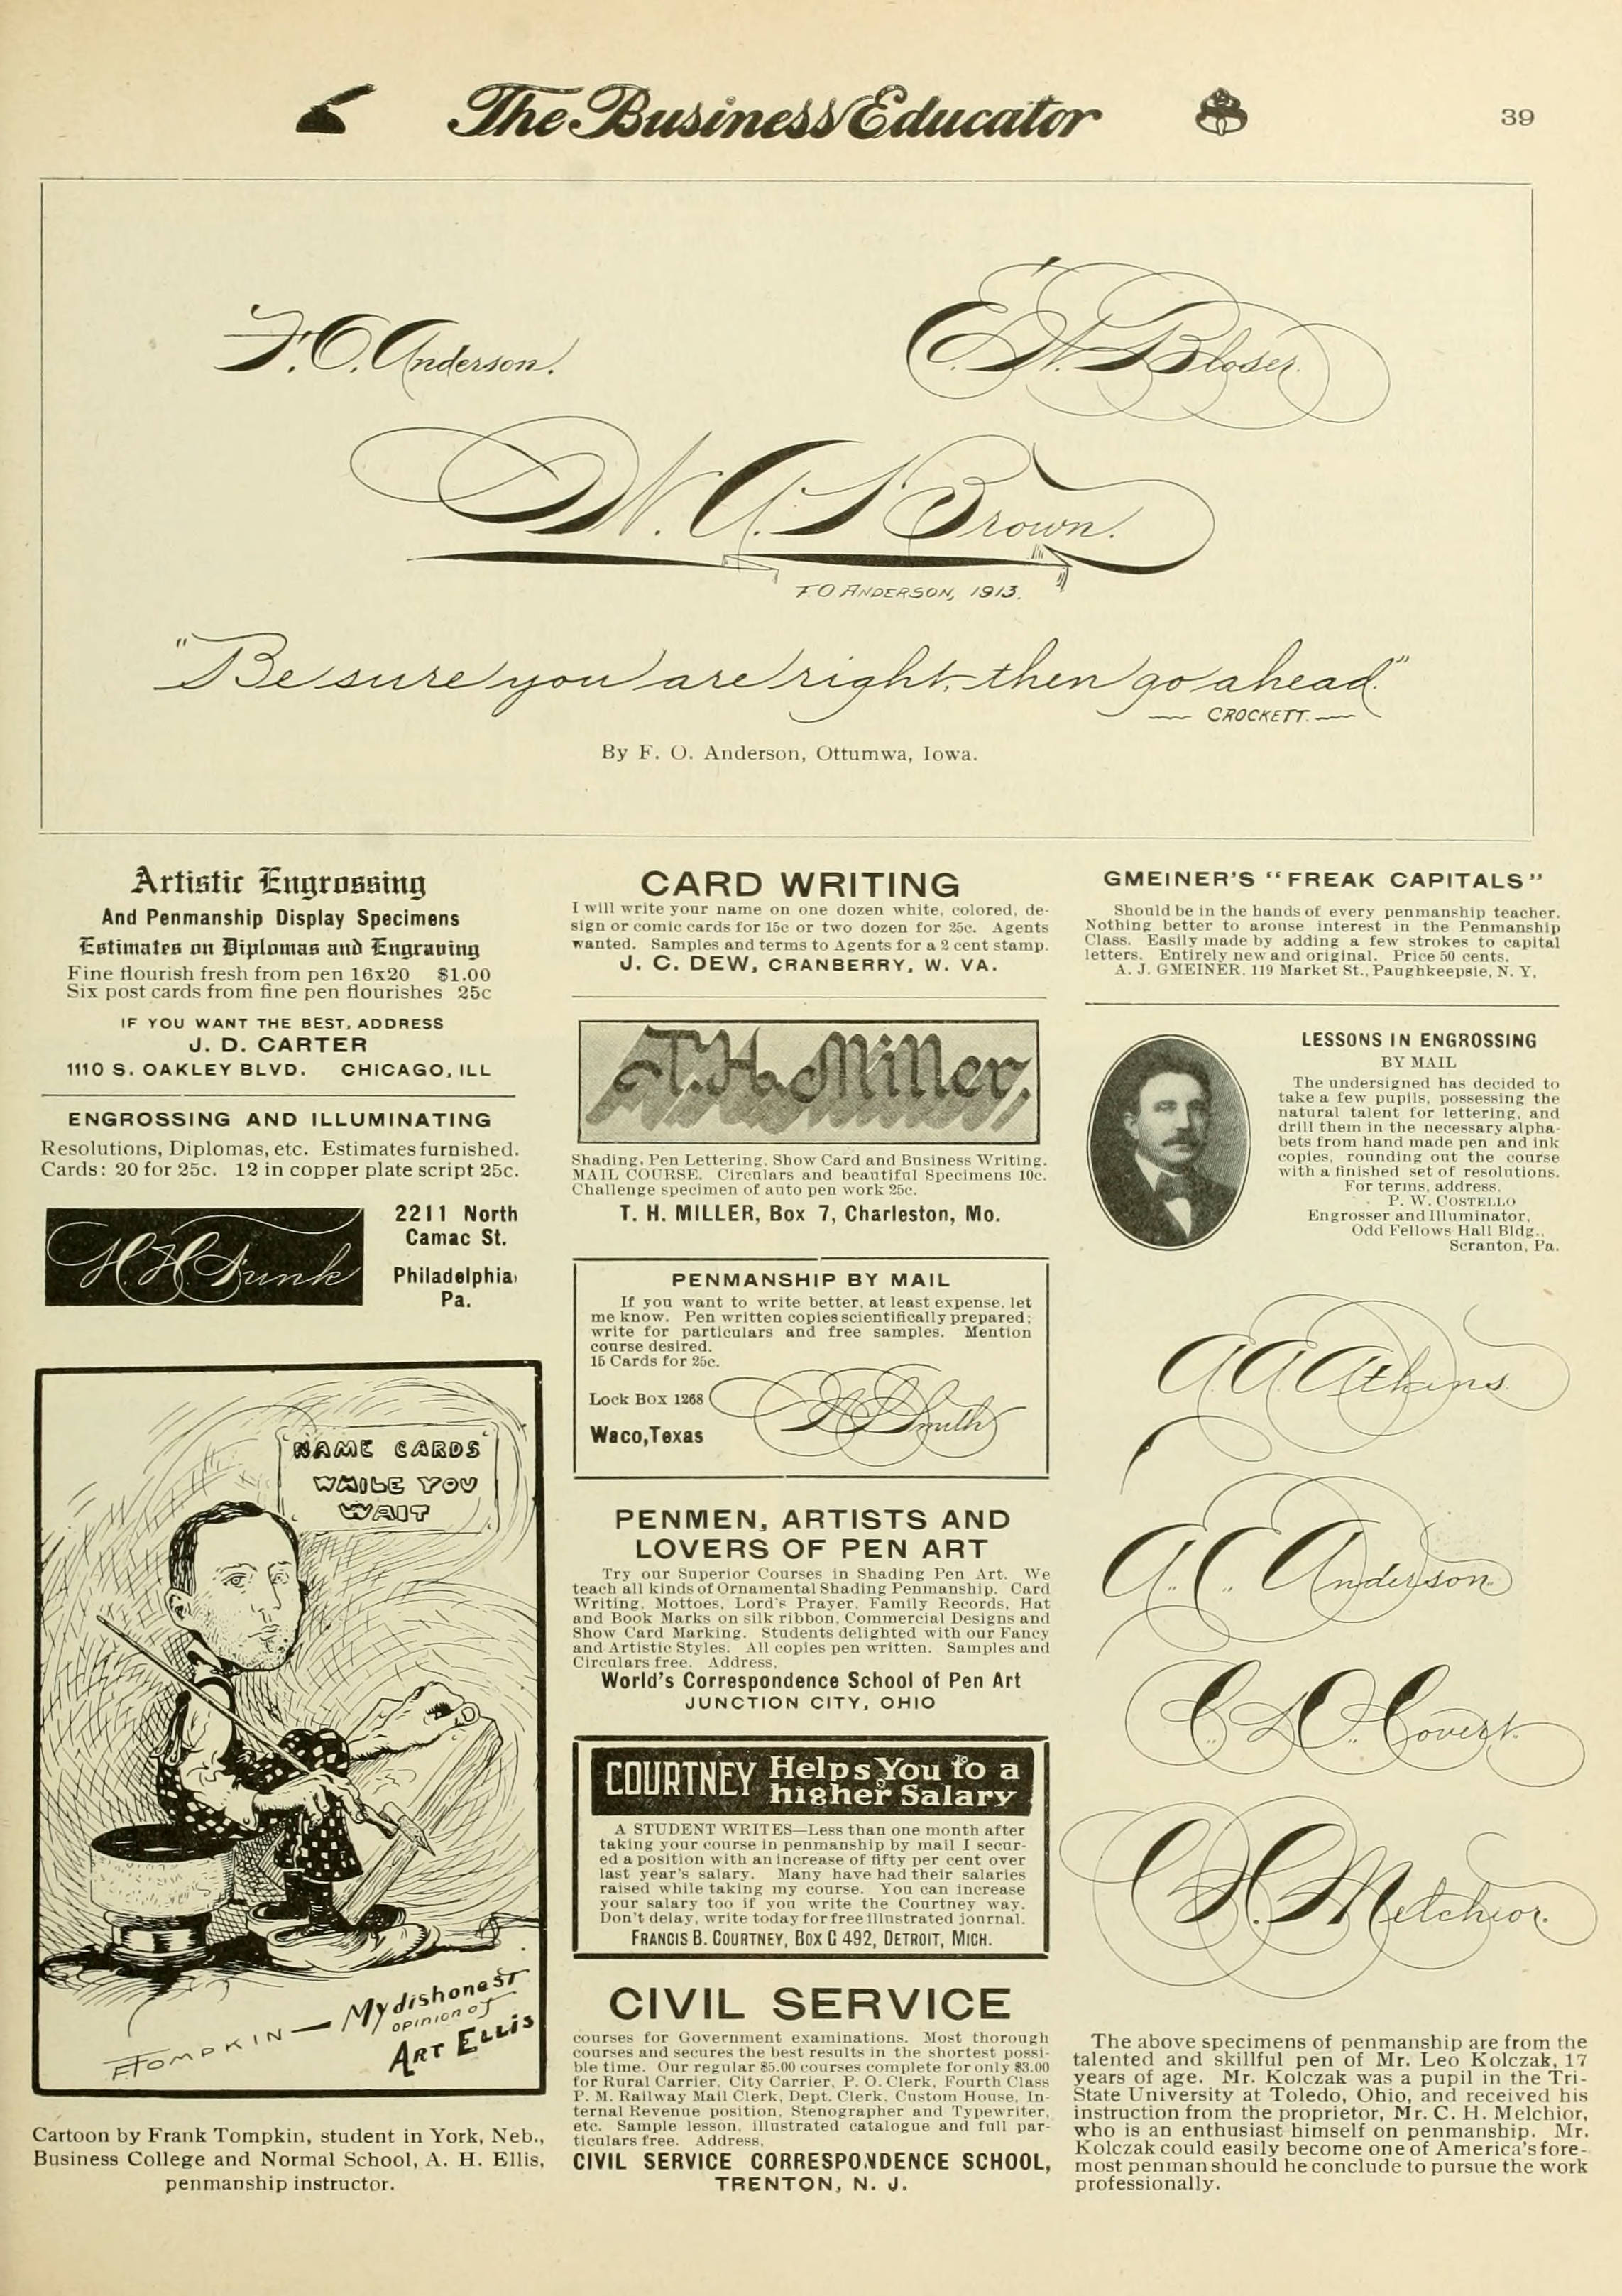 The Business Educator
39
F. O. Anderson.
E. W. Bloser.
W. A. S. Brown.
F. O. ANDERSON, 1913.
"Be sure you are right, then go ahead."
CROCKETT.
By F. O. Anderson, Ottumwa, Iowa.
Artistic Engrossing
And Penmanship Display Specimens
Estimates on Diplomas and Engraving
Fine flourish fresh from pen 16x20 $1.00
Six post cards from fine pen flourishes 25c
IF YOU WANT THE BEST, ADDRESS
J. D. CARTER
1110 S. OAKLEY BLVD. CHICAGO, ILL
ENGROSSING AND ILLUMINATING
Resolutions, Diplomas, etc. Estimates furnished.
Cards: 20 for 25c. 12 in copper plate script 25c.
H. H. Funk
2211 North
Camac St.
Philadelphia,
Pa.
NAME CARDS
WHILE YOU
WAIT
F TOMPKIN — My dishonest
opinion of
ART ELLIS
Cartoon by Frank Tompkin, student in York, Neb.,
Business College and Normal School, A. H. Ellis,
penmanship instructor.
CARD WRITING
I will write your name on one dozen white, colored, de-
sign or comic cards for 15c or two dozen for 25c. Agents
wanted. Samples and terms to Agents for a 2 cent stamp.
J. C. DEW, CRANBERRY, W. VA.
T. H. Miller,
Shading, Pen Lettering, Show Card and Business Writing.
MAIL COURSE. Circulars and beautiful Specimens 10c.
Challenge specimen of auto pen work 25c.
T. H. MILLER, Box 7, Charleston, Mo.
PENMANSHIP BY MAIL
If you want to write better, at least expense, let
me know. Pen written copies scientifically prepared;
write for particulars and free samples. Mention
course desired.
15 Cards for 25c.
Lock Box 1268
Waco, Texas
Smith
PENMEN, ARTISTS AND
LOVERS OF PEN ART
Try our Superior Courses in Shading Pen Art. We
teach all kinds of Ornamental Shading Penmanship. Card
Writing, Mottoes, Lord's Prayer, Family Records, Hat
and Book Marks on silk ribbon, Commercial Designs and
Show Card Marking. Students delighted with our Fancy
and Artistic Styles. All copies pen written. Samples and
Circulars free. Address,
World's Correspondence School of Pen Art
JUNCTION CITY, OHIO
COURTNEY Helps You to a
higher Salary
A STUDENT WRITES—Less than one month after
taking your course in penmanship by mail I secur-
ed a position with an increase of fifty per cent over
last year's salary. Many have had their salaries
raised while taking my course. You can increase
your salary too if you write the Courtney way.
Don't delay, write today for free illustrated journal.
FRANCIS B. COURTNEY, BOX G 492, DETROIT, MICH.
CIVIL SERVICE
courses for Government examinations. Most thorough
courses and secures the best results in the shortest possi-
ble time. Our regular $5.00 courses complete for only $3.00
for Rural Carrier, City Carrier, P. O. Clerk, Fourth Class
P. M. Railway Mail Clerk, Dept. Clerk, Custom House, In-
ternal Revenue position, Stenographer and Typewriter,
etc. Sample lesson, illustrated catalogue and full par-
ticulars free. Address,
CIVIL SERVICE CORRESPONDENCE SCHOOL,
TRENTON, N. J.
GMEINER'S "FREAK CAPITALS"
Should be in the hands of every penmanship teacher.
Nothing better to arouse interest in the Penmanship
Class. Easily made by adding a few strokes to capital
letters. Entirely new and original. Price 50 cents.
A. J. GMEINER, 119 Market St., Paughkeepsie, N. Y.
LESSONS IN ENGROSSING
BY MAIL
The undersigned has decided to
take a few pupils, possessing the
natural talent for lettering, and
drill them in the necessary alpha-
bets from hand made pen and ink
copies, rounding out the course
with a finished set of resolutions.
For terms, address,
P. W. COSTELLO
Engrosser and Illuminator,
Odd Fellows Hall Bldg.,
Scranton, Pa.
A. A. Atkins
A. E. Anderson.
C. D. Covert.
C. H. Melchior.
The above specimens of penmanship are from the
talented and skillful pen of Mr. Leo Kolczak, 17
years of age. Mr. Kolczak was a pupil in the Tri-
State University at Toledo, Ohio, and received his
instruction from the proprietor, Mr. C. H. Melchior,
who is an enthusiast himself on penmanship. Mr.
Kolczak could easily become one of America's fore-
most penman should he conclude to pursue the work
professionally.